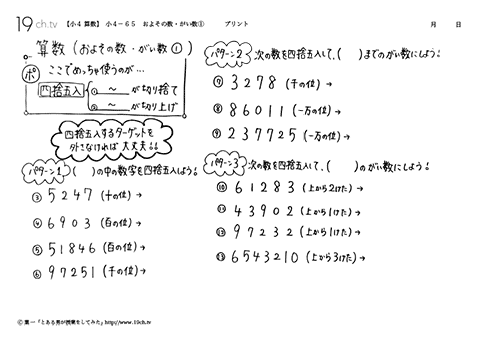 19ch.tv 【小4 算数】 小4－65 およその数・がい数① プリント 月 日
算数 (およその数・がい数①)
ポ ここでめっちゃ使うのが…
四捨五入 ① 〜 が切り捨て
② 〜 が切り上げ
四捨五入するターゲットを
外さなければ大丈夫!!
パターン1 ( )の中の数字を四捨五入しよう!
③ 5247 (十の位) →
④ 6903 (百の位) →
⑤ 51846 (百の位) →
⑥ 97251 (千の位) →
パターン2 次の数を四捨五入して、( )までのがい数にしよう!
⑦ 3278 (千の位) →
⑧ 86011 (一万の位) →
⑨ 237725 (一万の位) →
パターン3 次の数を四捨五入して、( )のがい数にしよう!
⑩ 61283 (上から2けた) →
⑪ 43902 (上から1けた) →
⑫ 97232 (上から1けた) →
⑬ 6543210 (上から3けた) →
Ⓒ 葉一「とある男が授業をしてみた」http://www.19ch.tv